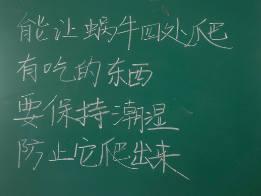 能让蜗牛四处爬
有吃的东西
要保持潮湿
防止它爬出来